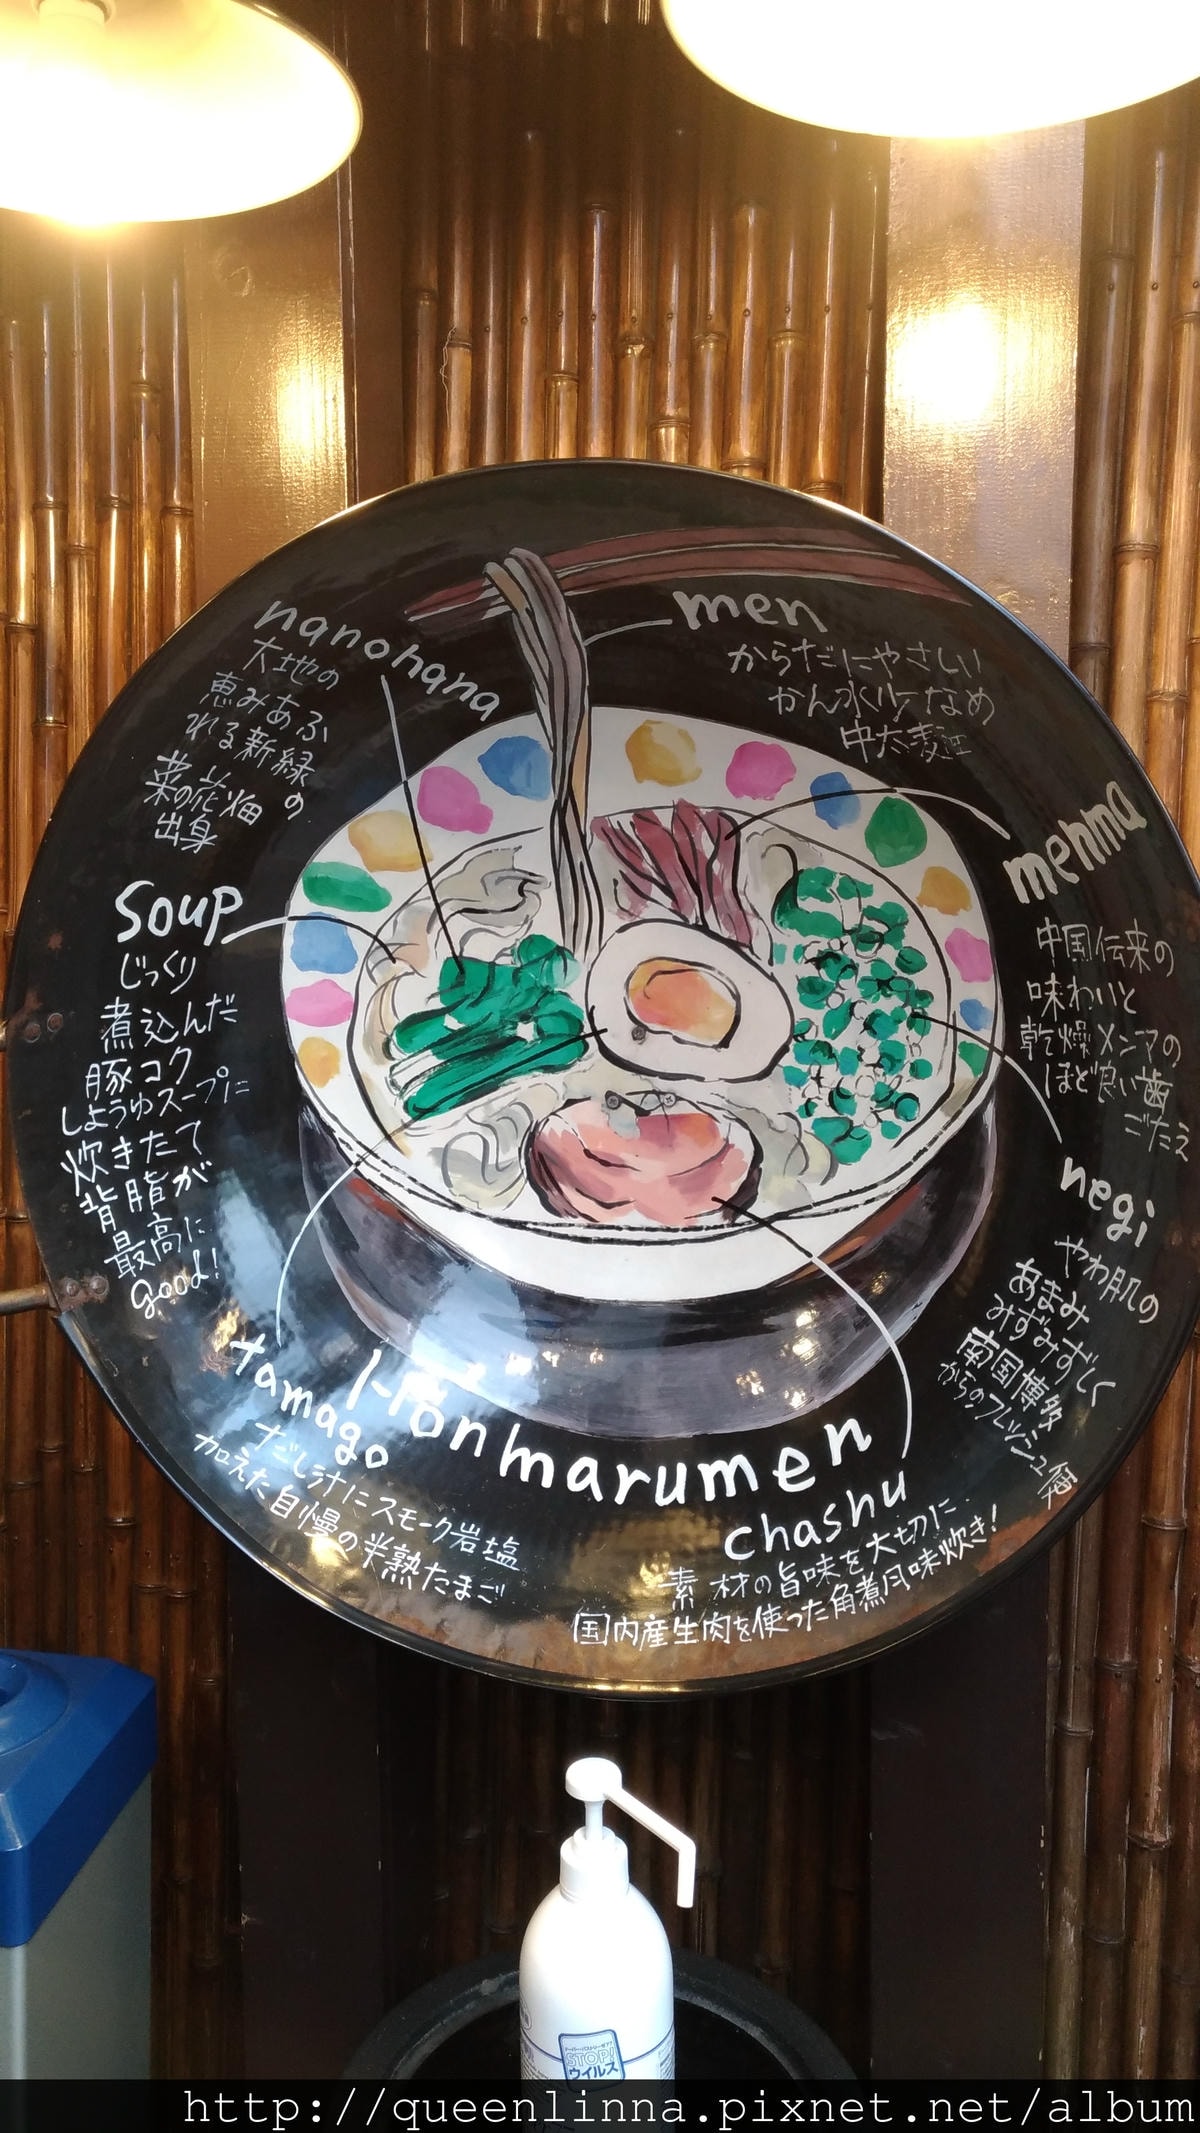 men
からだにやさしい
かん水少なめ
中太麺
nanohana
大地の
恵みあふ
れる新緑の
菜の花畑
出身
menma
中国伝来の
味わいと
乾燥メンマの
ほど良い歯
ごたえ
Soup
じっくり
煮込んだ
豚コク
しょうゆスープに
炊きたて
背脂が
最高に
good!
negi
やわ肌の
あまみ
みずみずしく
南国博多
からのフレッシュ便
tamago
だし汁にスモーク岩塩
加えた自慢の半熟たまご
marumen
chashu
素材の旨味を大切に
国内産生肉を使った角煮風味炊き!
STOP!
ウイルス
http://queenlinna.pixnet.net/album